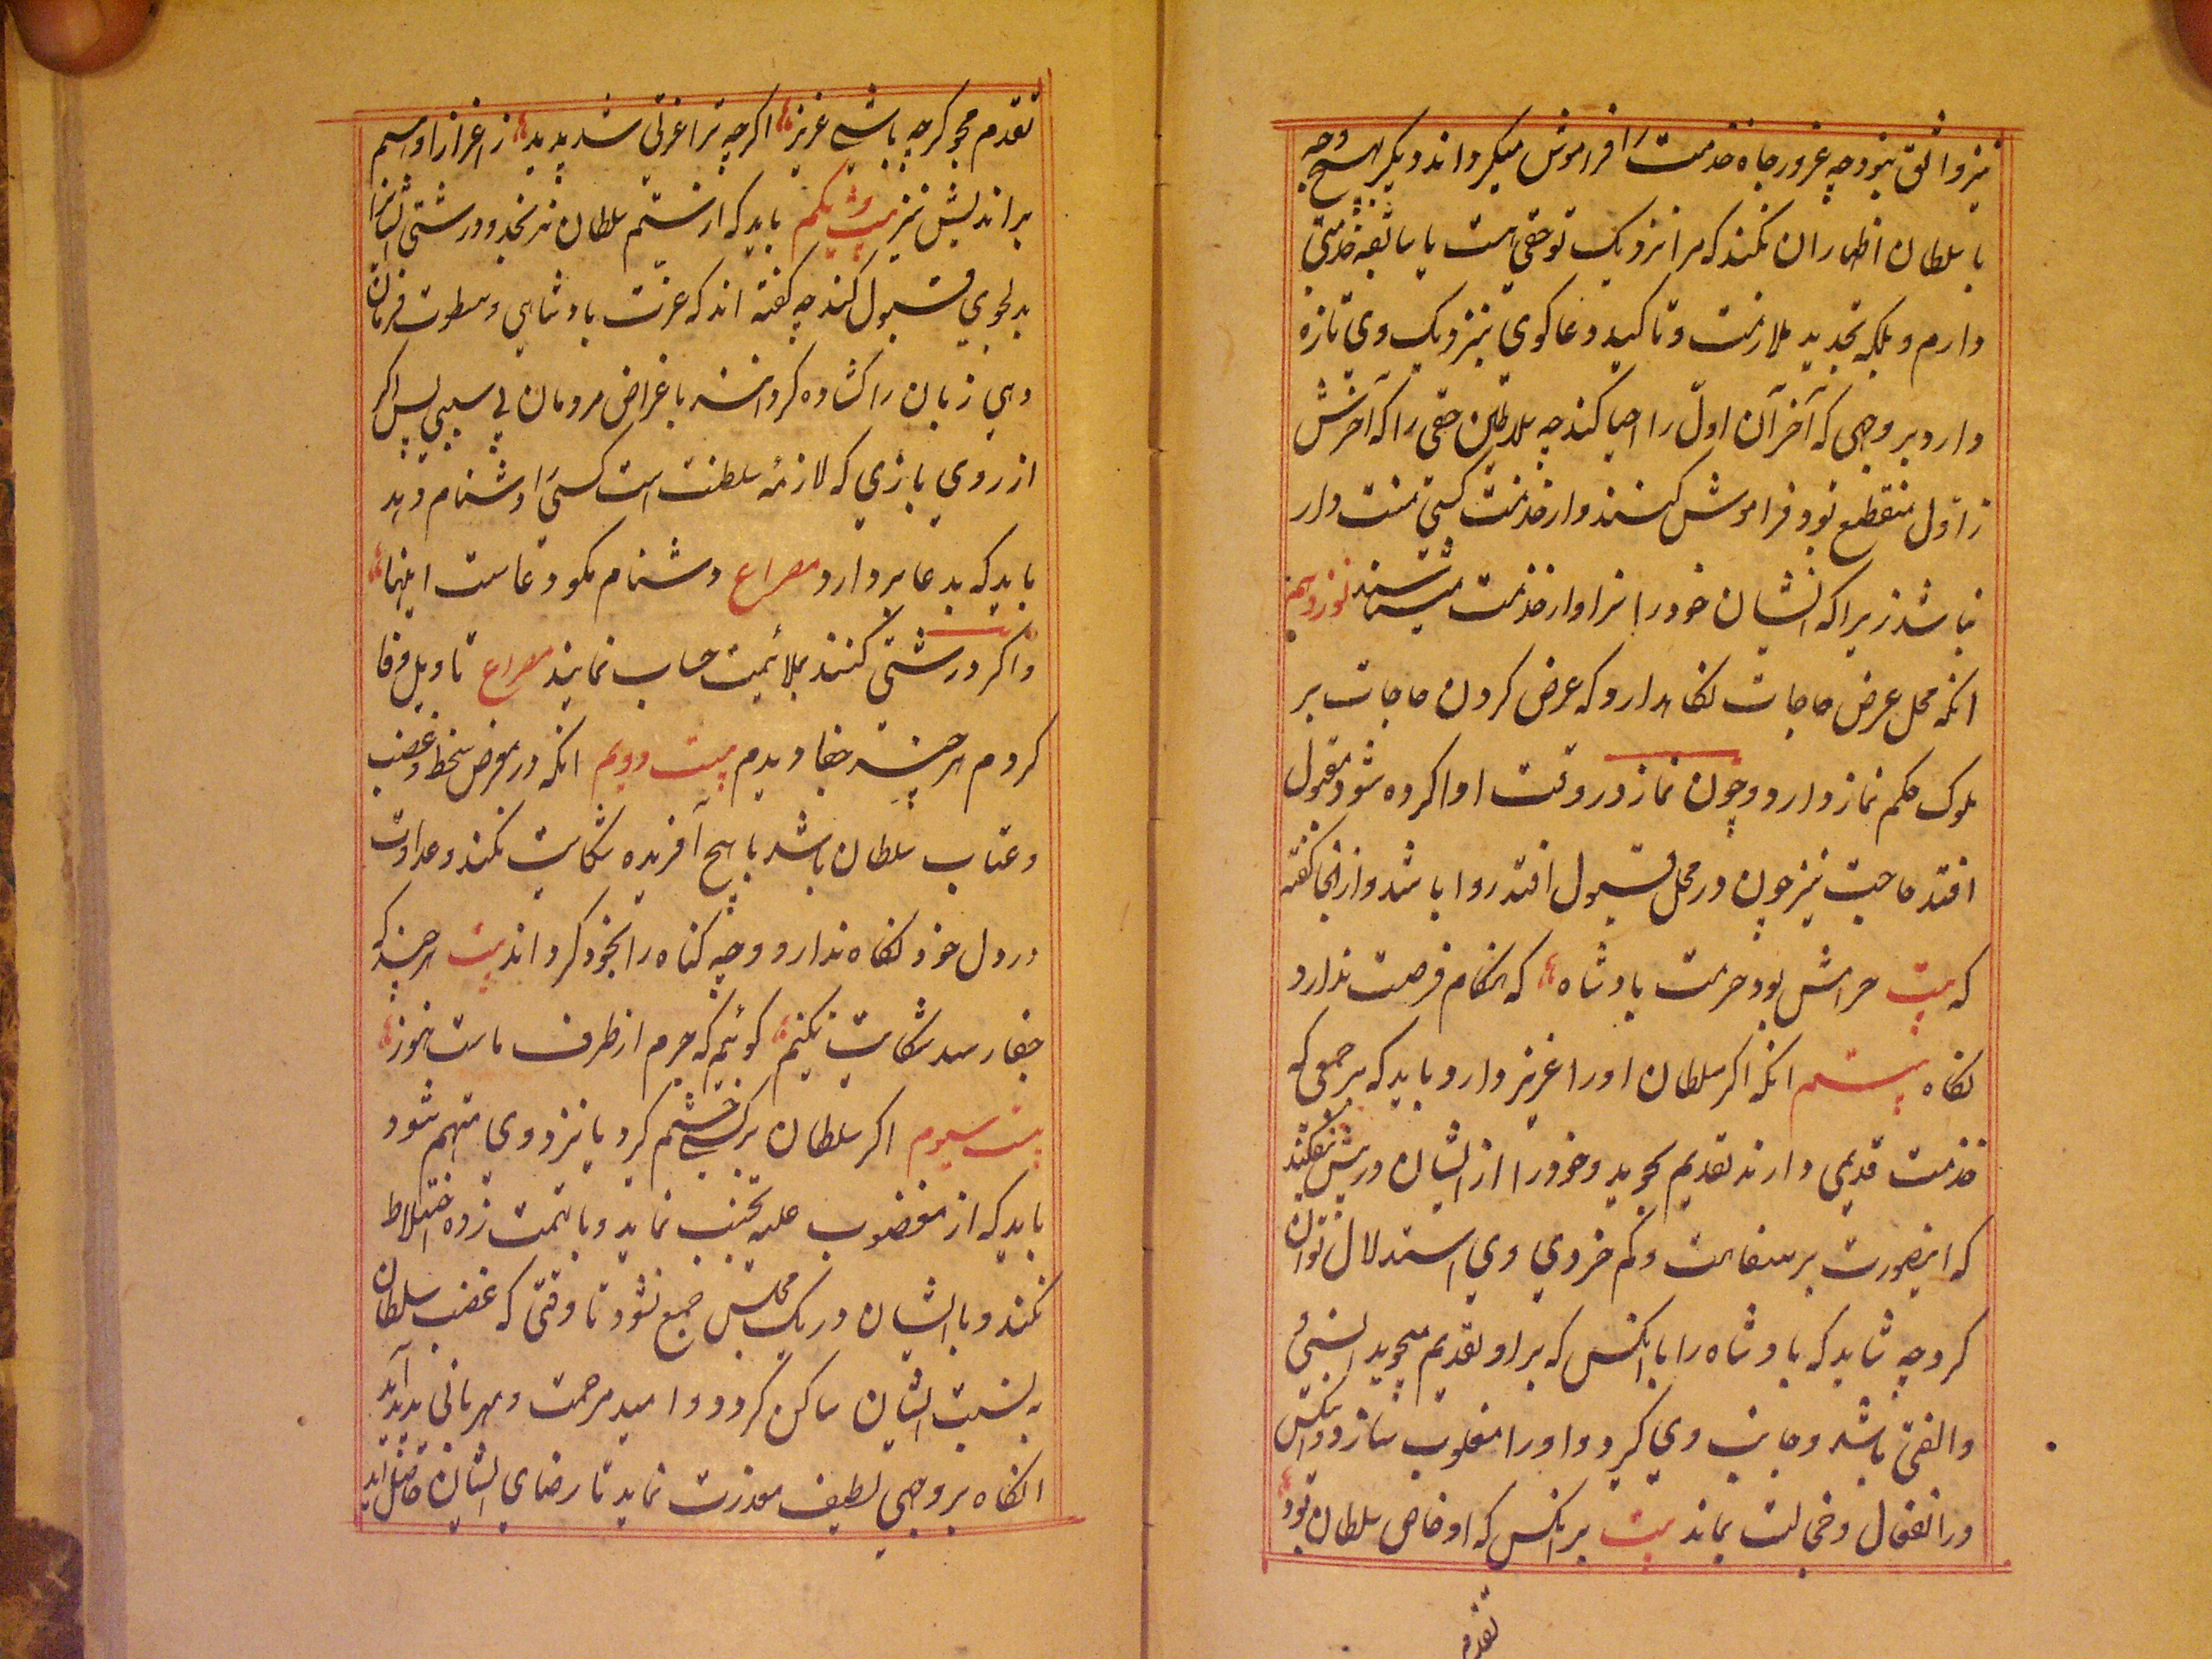 نیز واثق نبود چه غرور جاه خدمت را فراموش میکرداند و دیکر بهیچ وجه
با سلطان اظهار ان نکند که مرا نزدیک تو حقی است یا سابقه خدمتی
دارم و بلکه تجدید ملازمت و تاکید دعاکوی بنزدیک وی تازه
دارد بر وجهی که آخر آن اول را احیا کند چه سلاطین حقی را که آخرش
ز اول منقطع بود فراموش کنند و از خدمت کسی منت دار
نباشد زیرا که ایشان خود را سزاوار خدمت میشناسند نوزدهم
انکه محل عرض حاجات نکاهدارد که عرض کردن حاجات بر
ملوک حکم نماز دارد و چون نماز در وقت ادا کرده شود مقبول
افتد حاجت نیز چون در محل قبول افتد روا باشد و از اینجا کفته
که بیت حرامش بود حرمت بادشاه که هنکام فرصت ندارد
نکاه بیستم انکه اکر سلطان او را عزیز دارد باید که بر جمعی که
خدمت قدیمی دارند تقدیم نجوید و خود را از ایشان در پیش نفکند
که اینصورت بر سفاهت و کم خردی وی استدلال توان
کرد چه شاید که بادشاه را با انکس که بر او تقدیم میجوید انسی و
والفتی باشد و جانب وی کیرد و او را مغلوب سازد و انکس
در انفعال و خجالت بماند بیت بر انکس که او خاص سلطان بود
تقدم
تقدم مجو کرچه باشی عزیز اکرچه ترا عزتی شد پدید ز اعزاز او هم
براندیش نیز بیست و یکم باید که از ستم سلطان نرنجد و درشتی ایشانرا
بدلجوی قبول کند چه کفته اند که عزت بادشاهی و سطوت فرمان
دهی زبان را کشاده کرداند باغراض مردمان بی سببی پس اکر
از روی بازی که لازمه سلطنت است کسی را دشنام دهد
باید که بدعا بردارد مصراع دشنام مکو دعاست اینها
و اکر درشتی کنند بملائمت حساب نمایند مصراع تاویل وفا
کردم هر چند جفا دیدم بیست دویم انکه در معرض سخط و غضب
و عتاب سلطان باشد با هیچ آفریده شکایت نکند و عداوت
در دل خود نکاه ندارد و چه کناه را بخود کرداند بیت هر چند که
جفا رسد شکایت نکنیم کوئیم که جرم از طرف ماست هنوز
بیست سیوم اکر سلطان بر کسی خشم کرد یا نزد وی متهم شود
باید که از مغضوب علیه تجنب نماید و با تهمت زده اختلاط
نکند و با ایشان در یک مجلس جمع نشود تا وقتی که غضب سلطان
به نسبت ایشان ساکن کردد و امید مرحمت و مهربانی پدید آید
انکاه بر وجهی لطیف معذرت نماید تا رضای ایشان حاصل اید